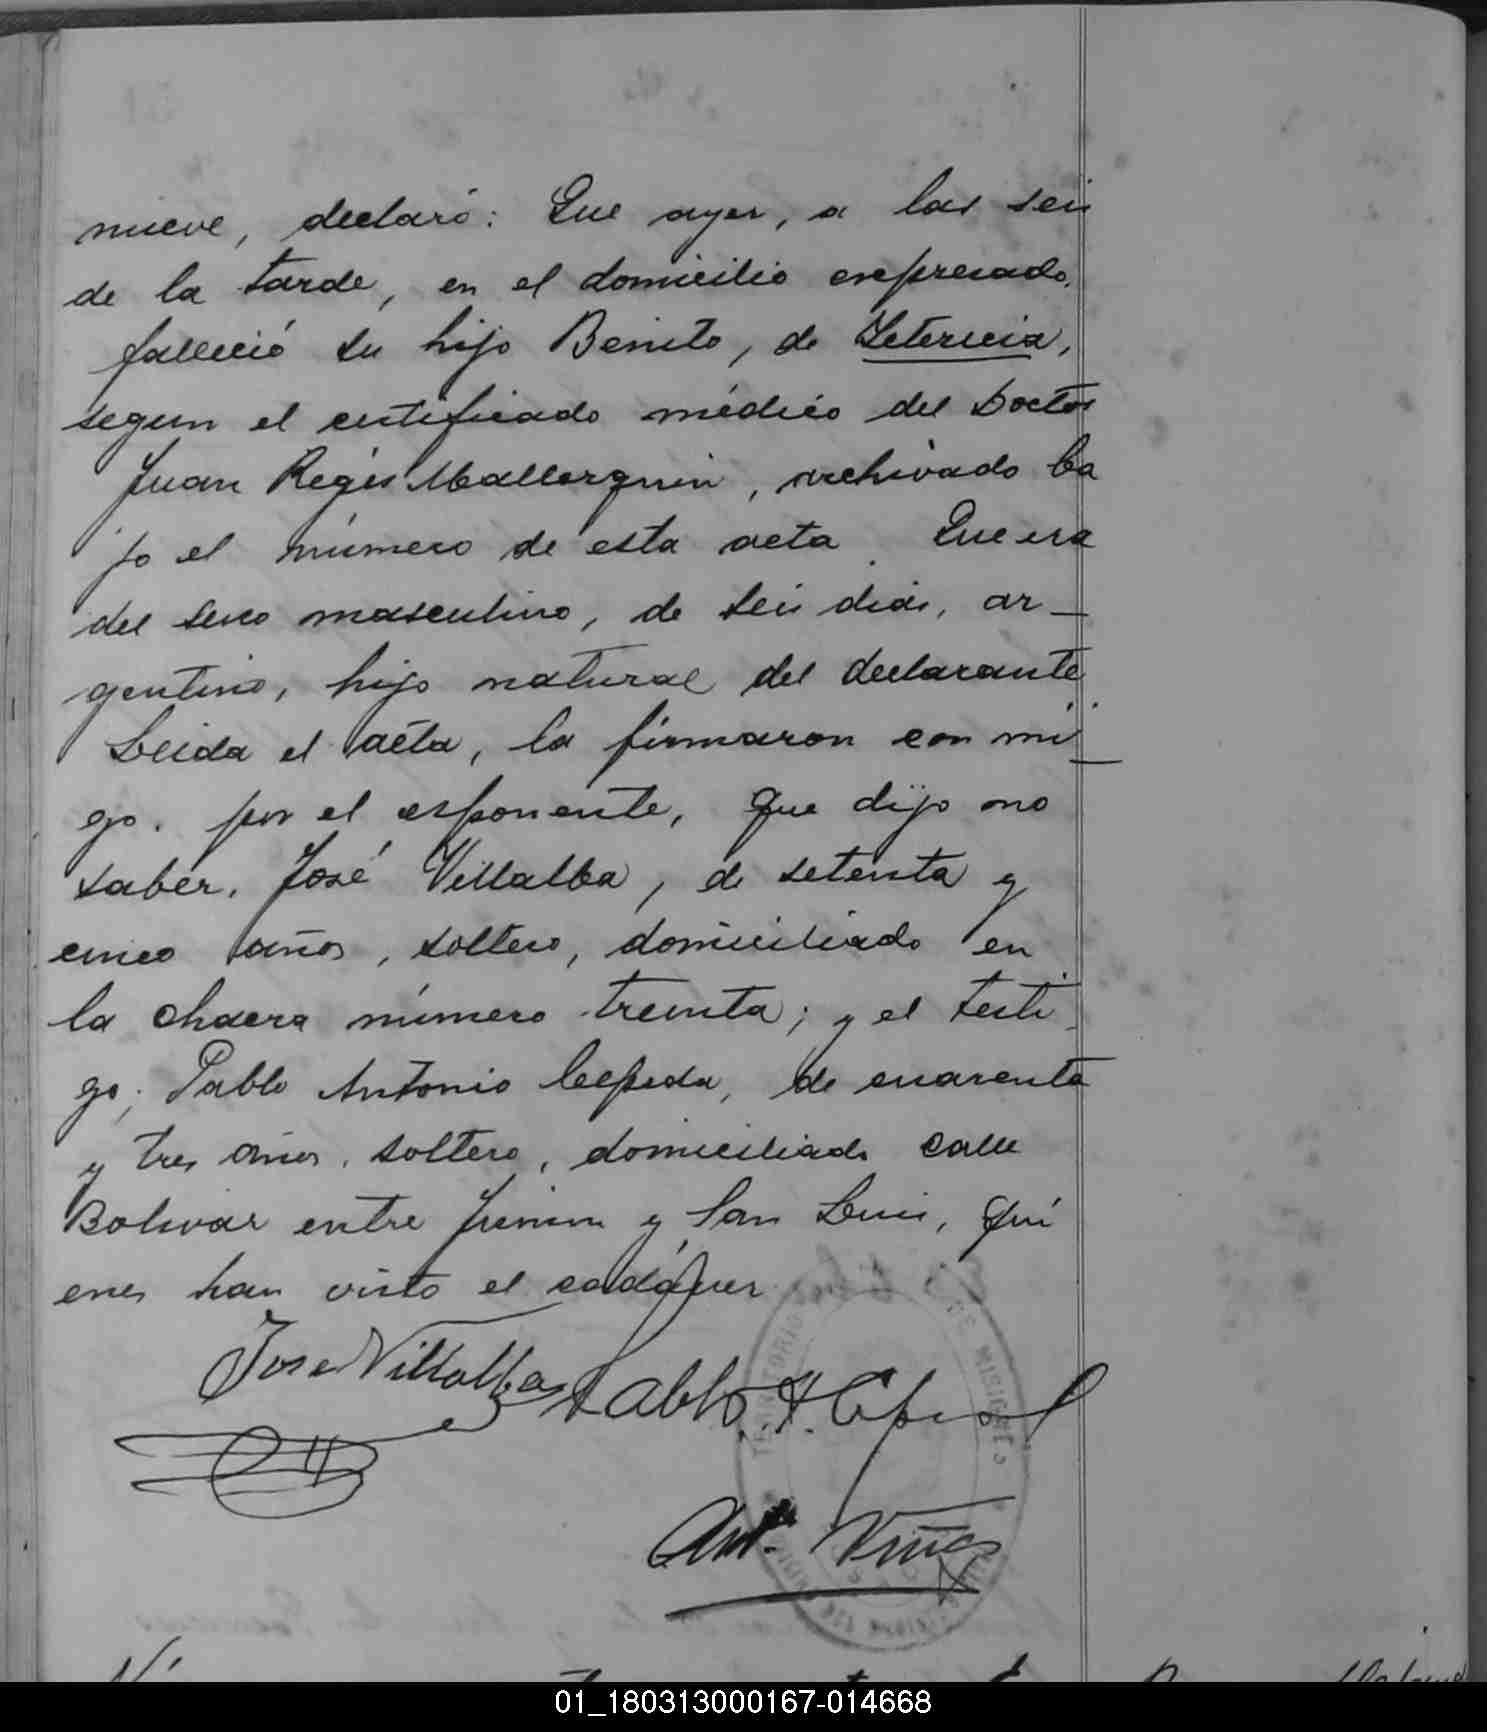 nueve, declaró: Que ayer, a las seis
de la tarde, en el domicilio expresado,
falleció su hijo Benito, de Ictericia,
segun el certificado médico del Doctor
Juan Regis Mallorquin, archivado ba
jo el número de esta acta. Que era
del sexo masculino, de seis dias, ar-
gentino, hijo natural del declarante
Leida el acta, la firmaron con mi-
go, por el esponente, que dijo no
saber, José Villalba, de setenta y
cinco años, soltero, domiciliado en
la chacra número treinta; y el testi
go, Pablo Antonio Cepeda, de cuarenta
y tres años, soltero, domiciliado calle
Bolivar entre Junin y San Luis, qui
enes han visto el cadáver
Jose Villalba Pablo A.
Ant. Viñas
TERRITORIO DE MISIONES
01_180313000167-014668